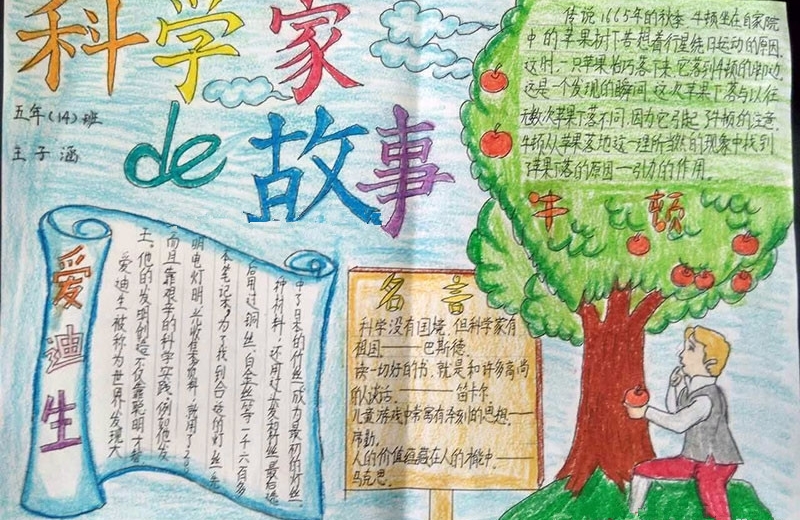 科学家
de 故事
五年(14)班
王子涵
传说1665年的秋季 牛顿坐在自家院
中的苹果树下苦想着行星绕日运动的原因.
这时,一只苹果恰巧落下来,它落到牛顿的脚边.
这是一个发现的瞬间,这次苹果下落与以往
无数次苹果下落不同,因为它引起了牛顿的注意.
牛顿从苹果落地这一理所当然的现象中找到
了苹果下落的原因—引力的作用.
牛顿
爱迪生
爱迪生被称为世界发明大
王,他的发明创造不仅靠聪明才智
而且靠艰辛的科学实践,例如他发
明电灯时
本笔记本,为了找到合适的灯丝,先
后用过铜丝、白金丝等一千六百多
种材料,还用过头发和 丝 最后选
中了日本的竹丝成为最初的灯丝.
名言
科学没有国境,但科学家有
祖国——巴斯德.
读一切好的书,就是和许多高尚
的人谈话.——笛卡尔.
儿童游戏中常寓有深刻的思想——
席勒.
人的价值蕴藏在人的才能中——
马克思.